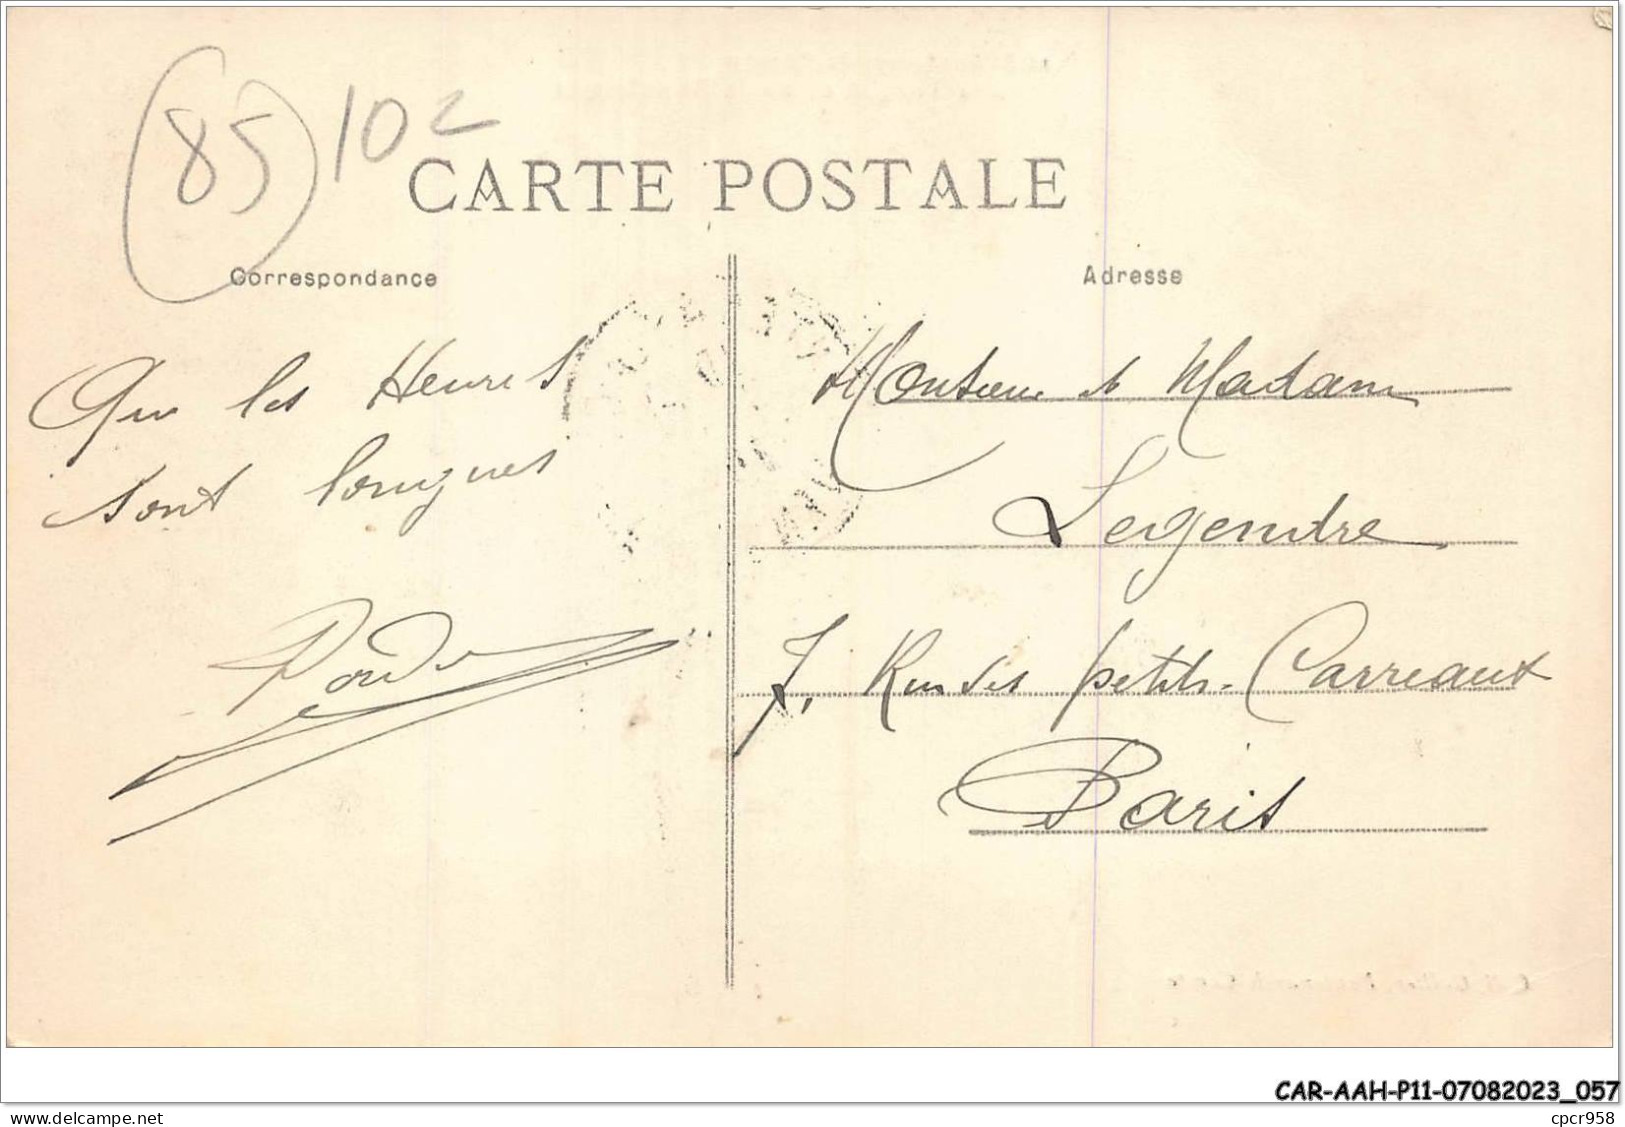 85 102
CARTE POSTALE
Correspondance
Adresse
Que les Heures
sont longues
Monsieur et Madame
Legendre
7, Rue des petits-Carreaux
Paris
CAR-AAH-P11-07082023_057
www.delcampe.net
cpcr958